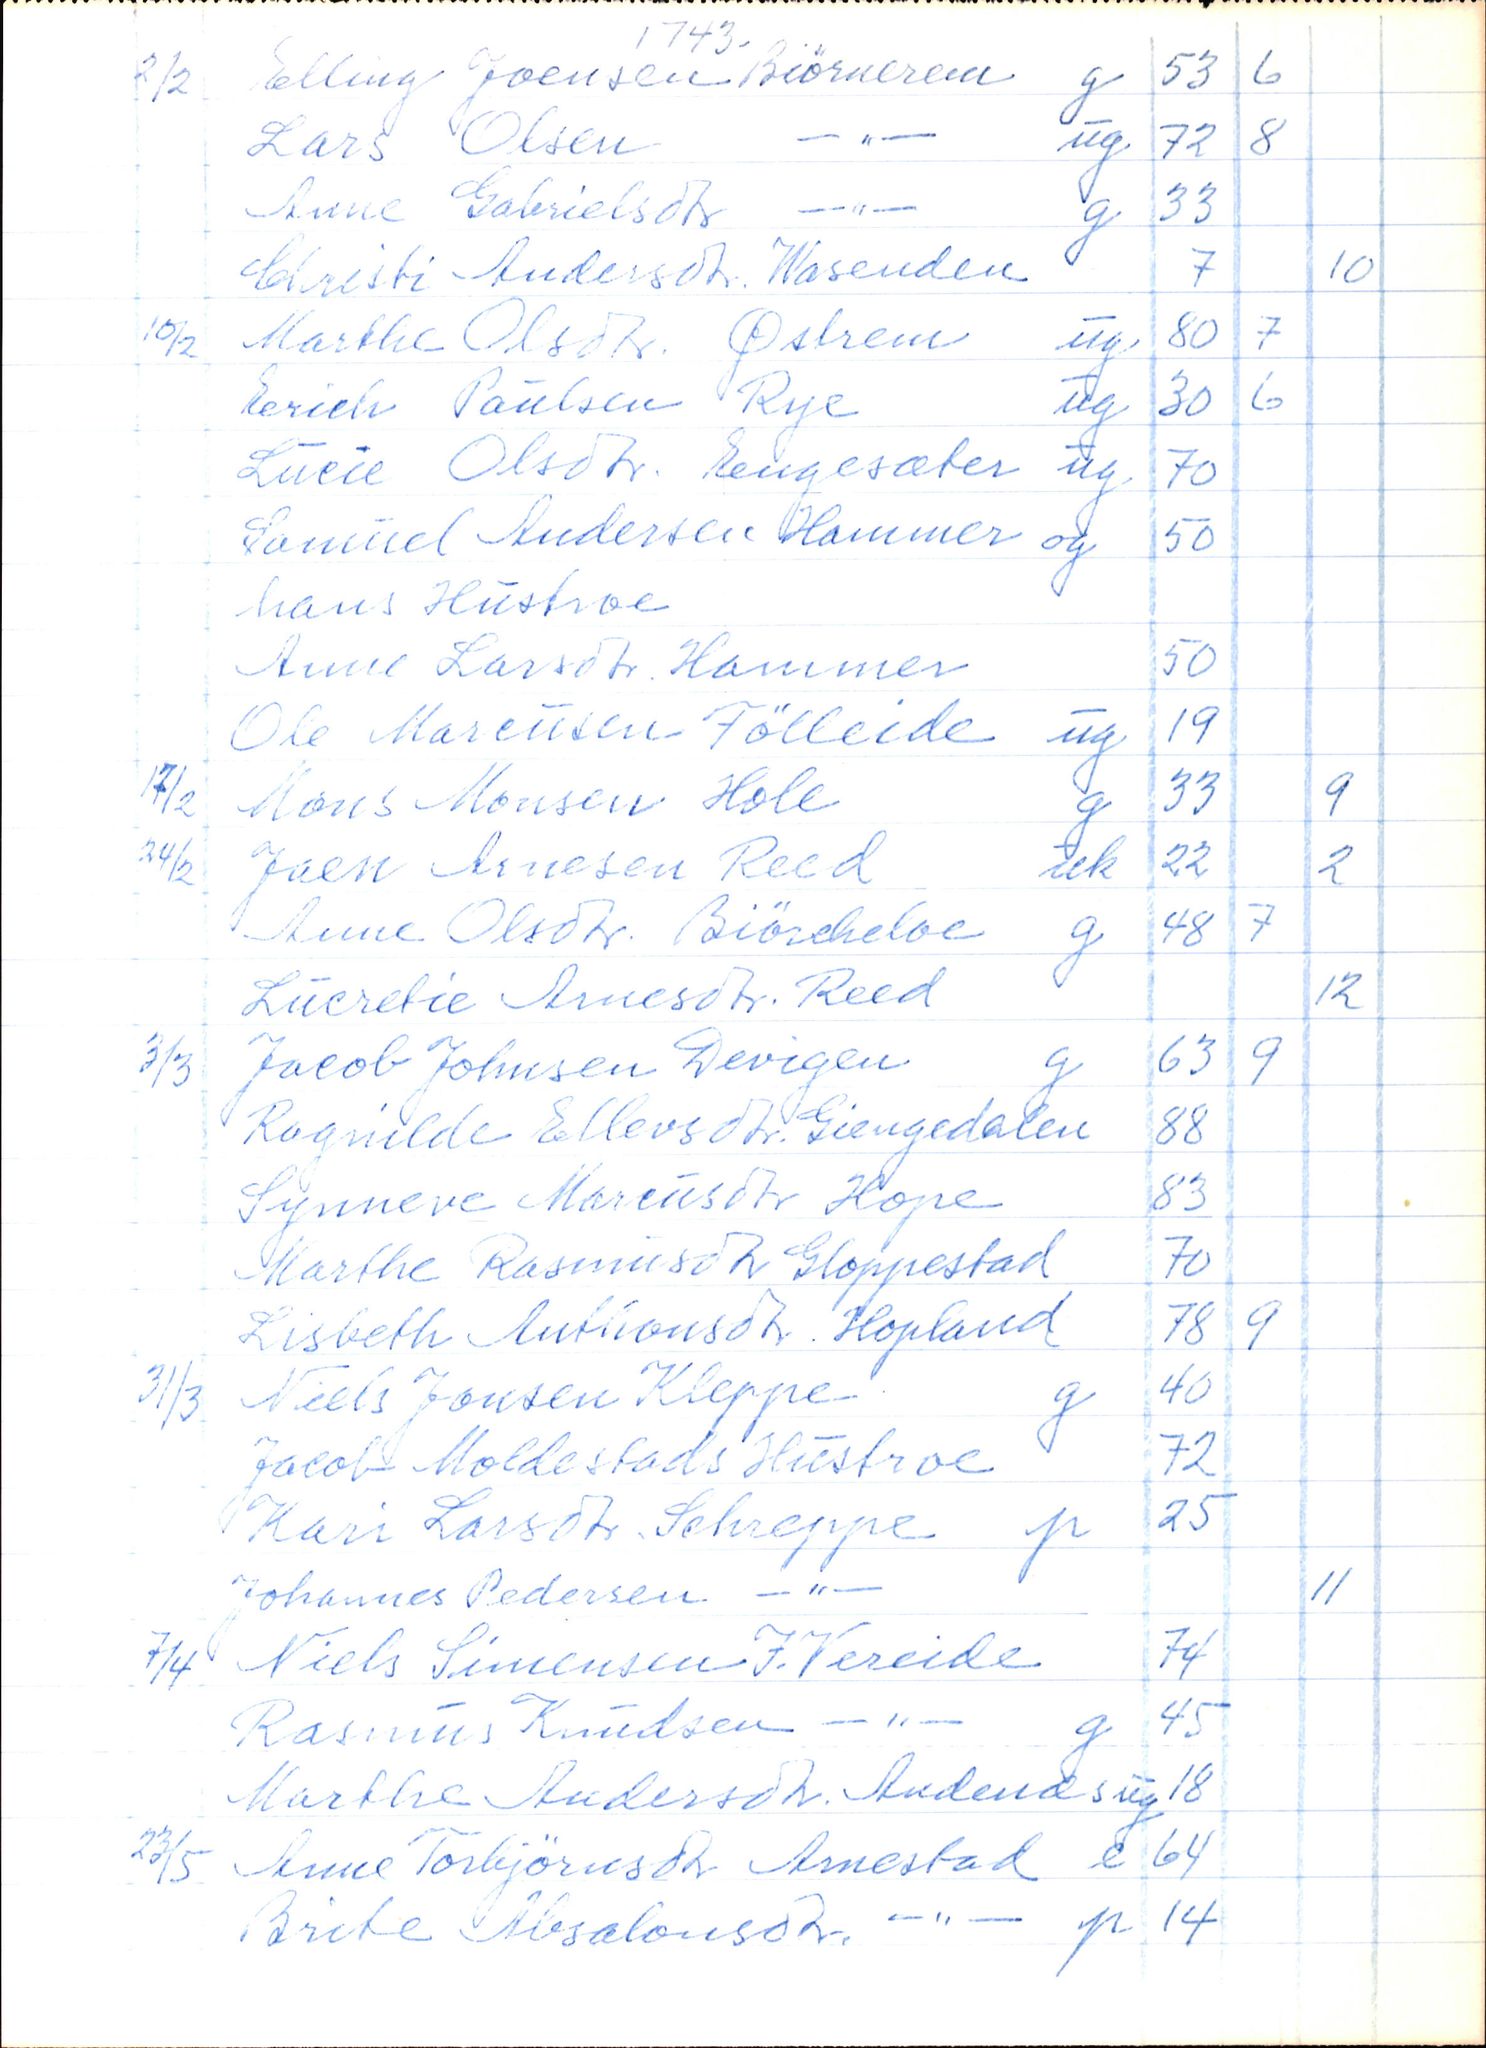 1743.
2/2 Elling Joensen Biörnerem g 53 6
Lars Olsen —"— ug 72 8
Anne Gabrielsdtr —"— g 33
Christi Andersdtr. Wasenden 7 10
10/2 Marthe Olsdtr. Østrem ug. 80 7
Erich Paulsen Rye ug 30 6
Lucie Olsdtr. Engesæter ug. 70
Samuel Andersen Hammer og 50
hans Hustroe
Anne Larsdtr. Hammer 50
Ole Marcusen Fölleide ug 19
17/2 Mons Monsen Hole g 33 9
24/2 Joen Arnesen Reed uk 22 2
Anne Olsdtr. Biörcheloe g 48 7
Lucretie Arnesdtr. Reed 12
3/3 Jacob Johnsen Devigen g 63 9
Ragnilde Ellevsdtr. Giengedalen 88
Synneve Marcusdtr Hope 83
Marthe Rasmusdtr Gloppestad 70
Lisbeth Anthonsdtr. Hopland 78 9
31/3 Niels Jonsen Kleppe g 40
Jacob Moldestads Hustroe 72
Kari Larsdtr. Schreppe p 25
Johannes Pedersen —"— 11
7/4 Niels Simensen I. Vereide 74
Rasmus Knudsen —"— g 45
Marthe Andersdtr. Andenæs ug 18
23/5 Anne Torbjörnsdtr Arnestad e 64
Brite Absalonsdtr. —"— p 14